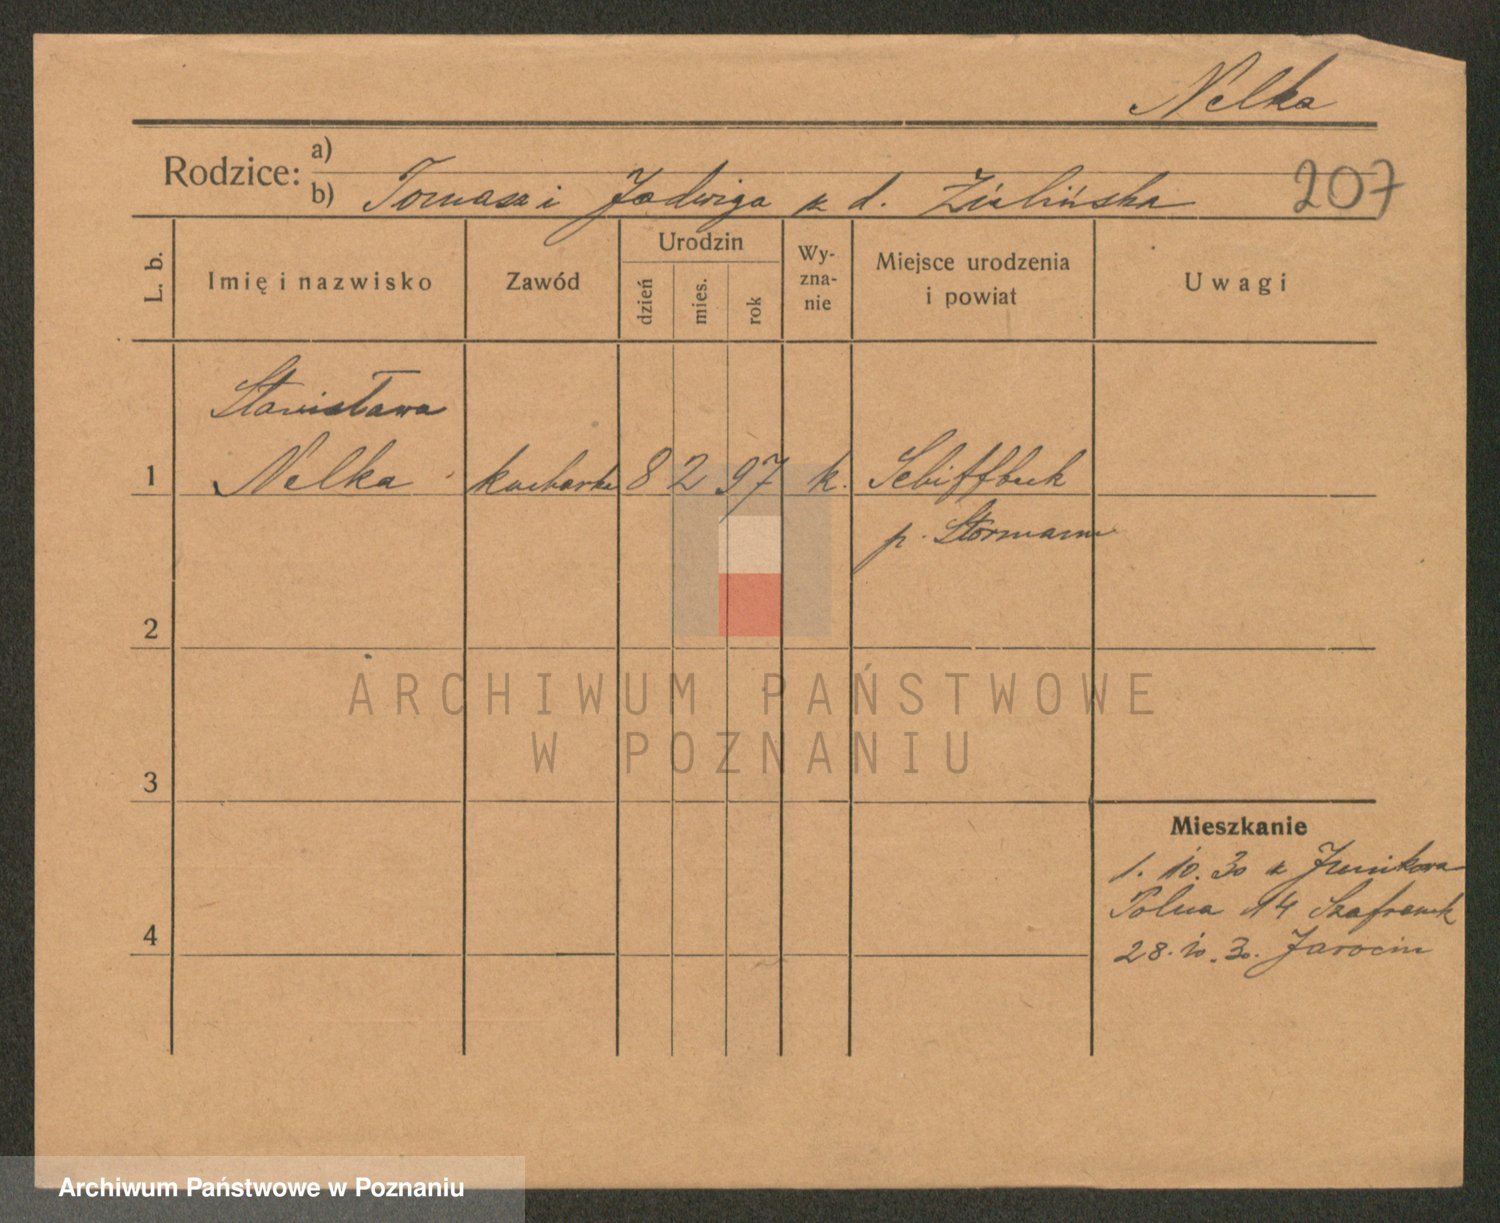 Nelka
Rodzice: a)
b) Tomasz i Jadwiga z d. Zielińska
207
L. b.
Imię i nazwisko
Zawód
Urodzin
dzień
mies.
rok
Wy-
zna-
nie
Miejsce urodzenia
i powiat
Uwagi
Stanisława
1 Nelka kucharka 8 2 97 k. Schiffbek
p. Stormarn
2
3
4
Mieszkanie
1. 10. 30 z Junikowa
Polna 14 Szafranek
28. 10. 30. Jarocin
ARCHIWUM PAŃSTWOWE
W POZNANIU
Archiwum Państwowe w Poznaniu